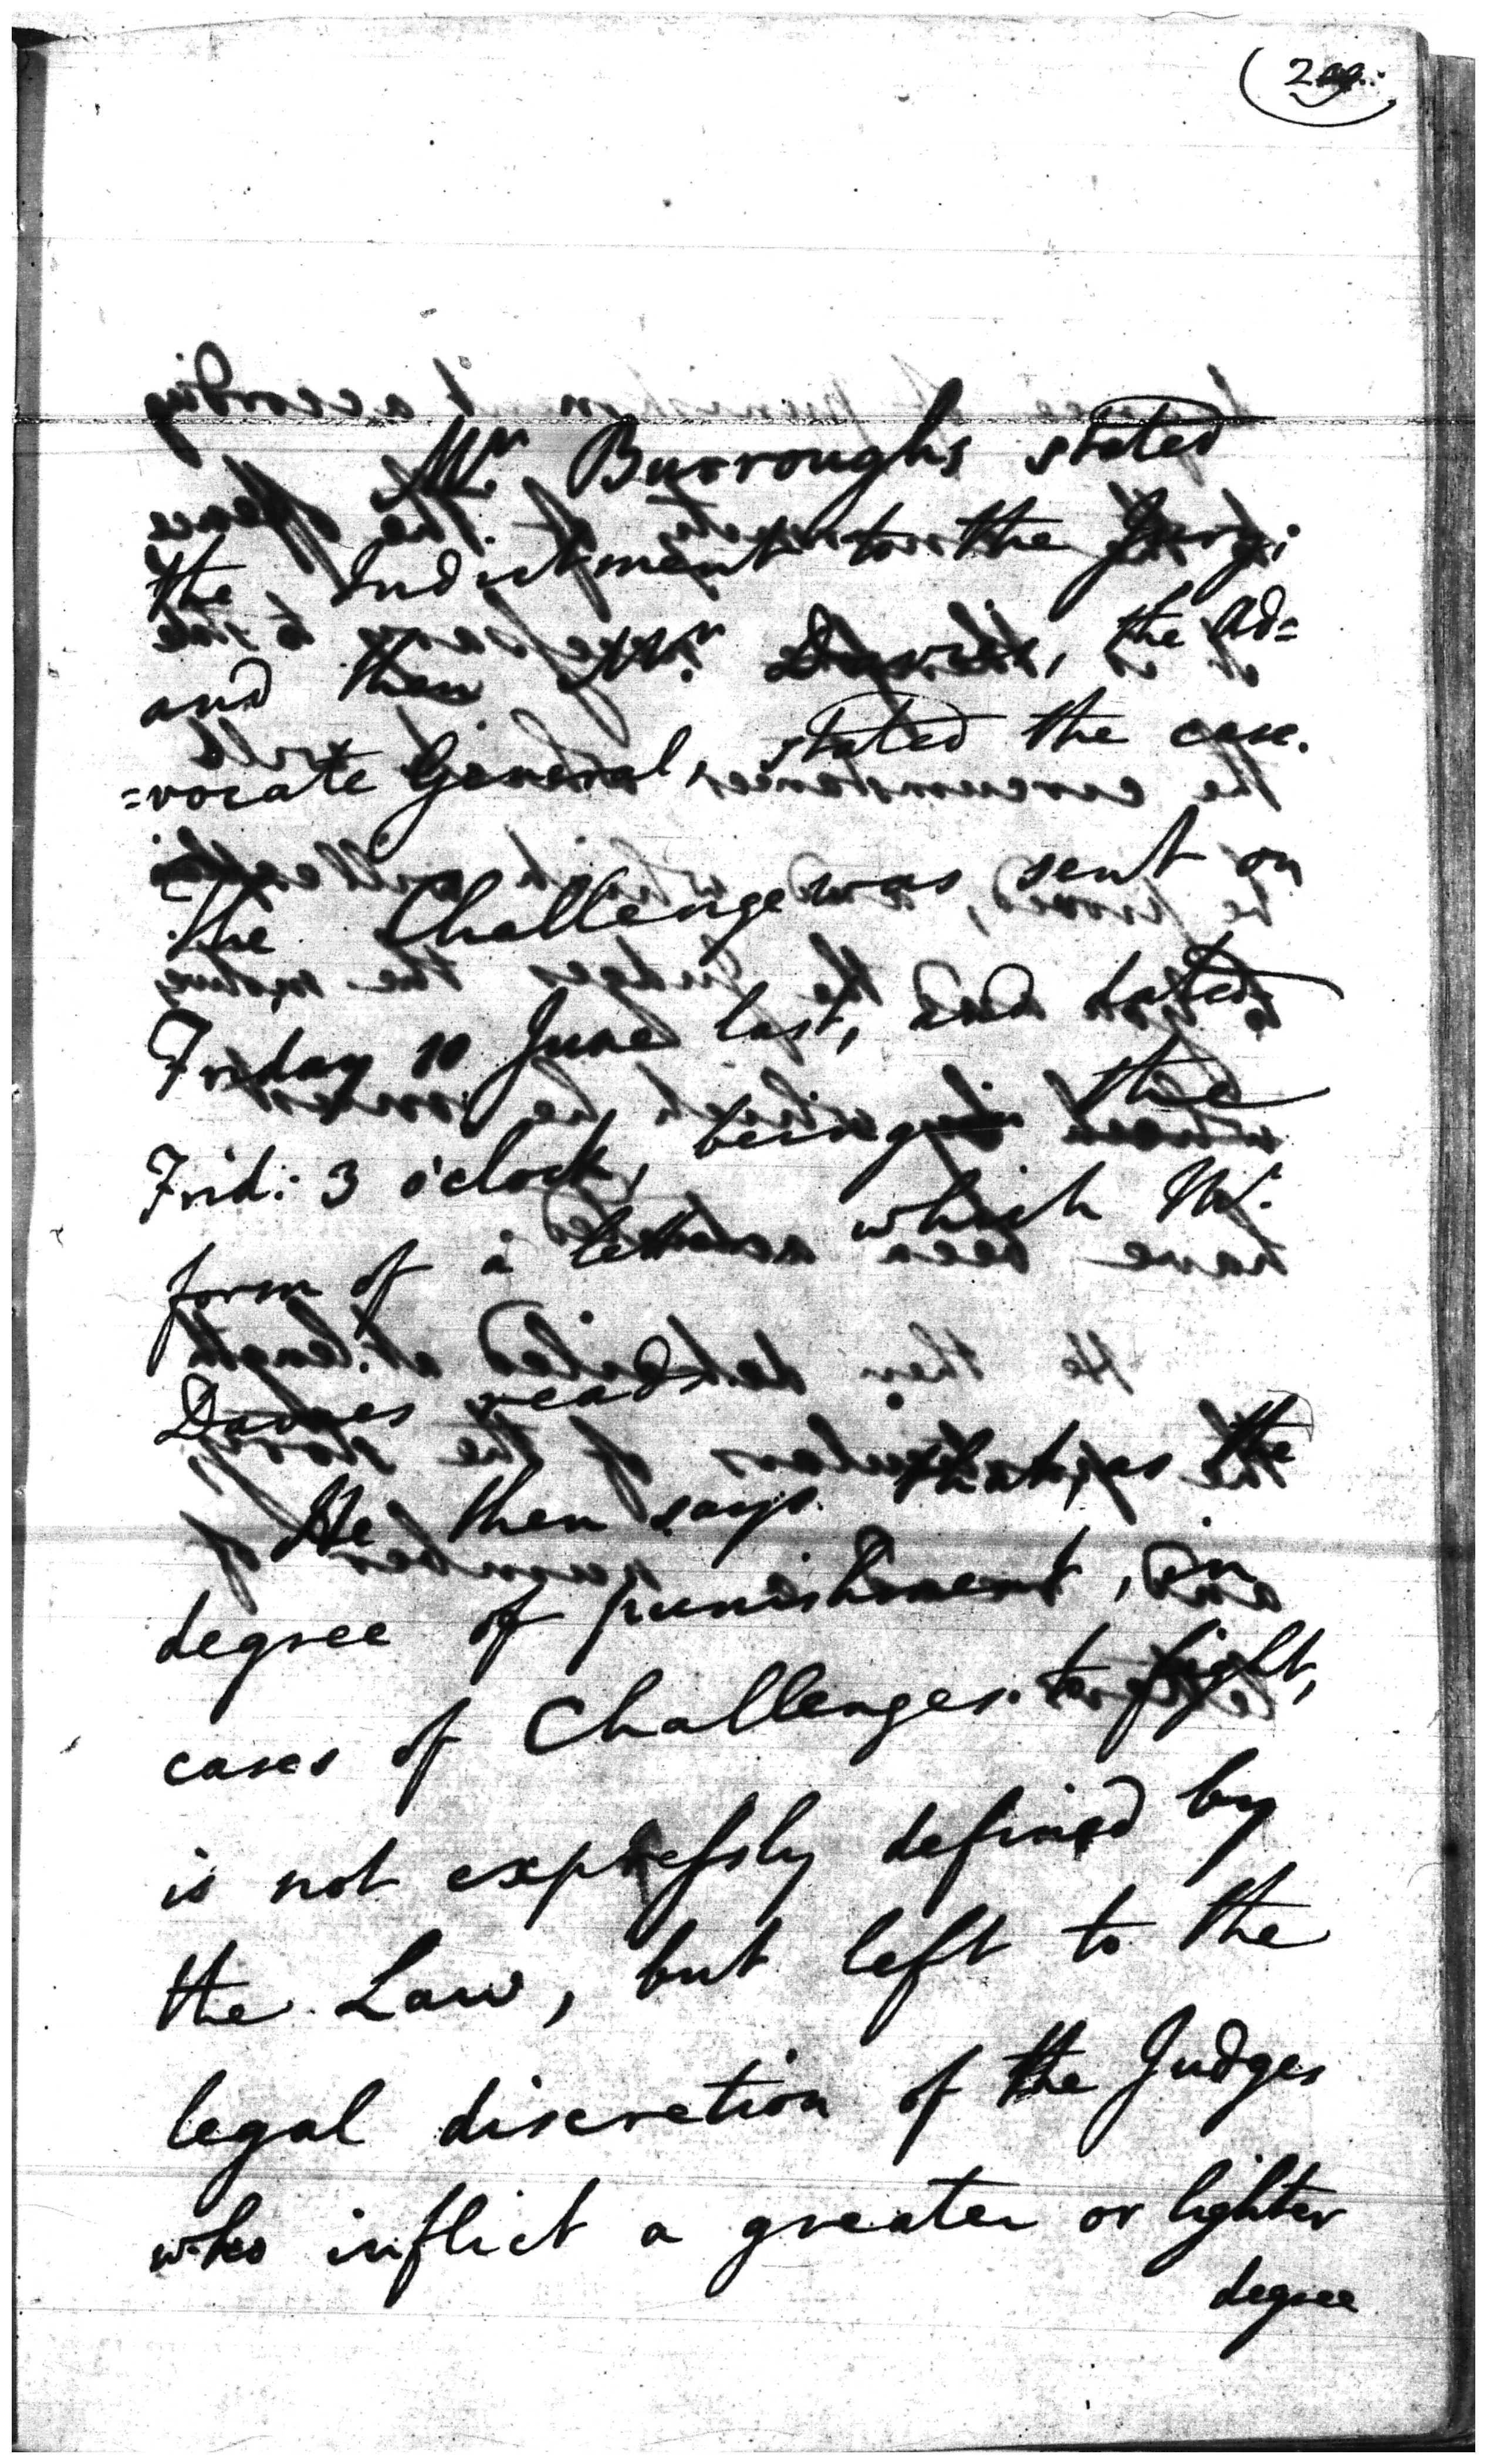 Mr. Burroughs stated
the Indictment to the Jury;
and then Mr. Davies, the Ad=
=vocate General, stated the case.
the Challenge was sent on
Friday 10 June last, and dated
Frid: 3 o'clock, being the
form of a letter which Mr.
Davies reads
He then says that, as the
degree of punishment, in
cases of Challenges to fight,
is not expressly defined by
the Law, but left to the
legal discretion of the Judges
who inflict a greater or lighter
degree